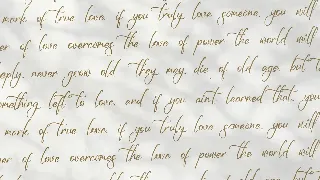 mark of true love. if you truly love someone, you will
er of love overcomes the love of power the world will
eply, never grow old they may die of old age, but
mething left to love. and if you ain't learned that, you
mark of true love. if you truly love someone, you will
er of love overcomes the love of power the world will